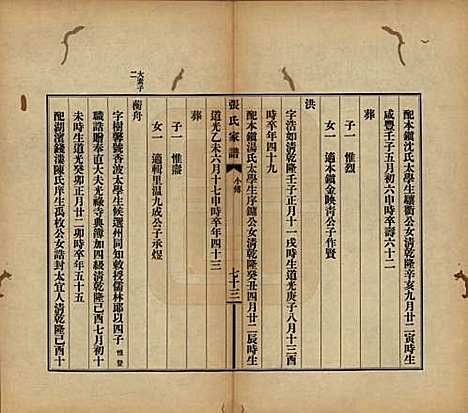 配本鎮沈氏太學生繡衢公女清乾隆辛亥九月廿二寅時生
咸豐壬子五月初六申時卒壽六十二
葬
子一　惟烈
女一　適本鎮金映青公子作賢
洪
字浩如清乾隆壬子正月十一戌時生道光庚子八月十三酉
時卒年四十九
配本鎮湯氏太學生序鏞公女清乾隆癸丑四月廿二辰時生
張氏家譜
小傳
七十三
道光乙未六月十七申時卒年四十三
葬
子一　惟燾
女一　適輯里溫九成公子承煜
大業子
二
蘅舟
字樹馨號香波太學生候選州同知敕授儒林郎以四子惟發
職誥贈奉直大夫光祿寺典簿加四級清乾隆己酉七月初十
未時生道光癸卯正月廿二卯時卒年五十五
配湖濱錢漊陳氏庠生禹枚公女誥封太宜人清乾隆己酉十